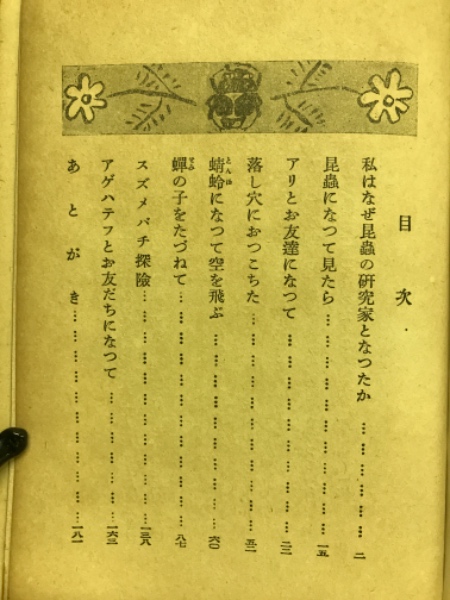 目次
私はなぜ昆蟲の研究家となつたか……………二
昆蟲になつて見たら……………一五
アリとお友達になつて……………二二
落し穴におつこちた……………五二
蜻蛉とんぼになつて空を飛ぶ……………六〇
蟬せみの子をたづねて……………八七
スズメバチ探險……………一三八
アゲハテフとお友だちになつて……………一六三
あとがき……………一八一